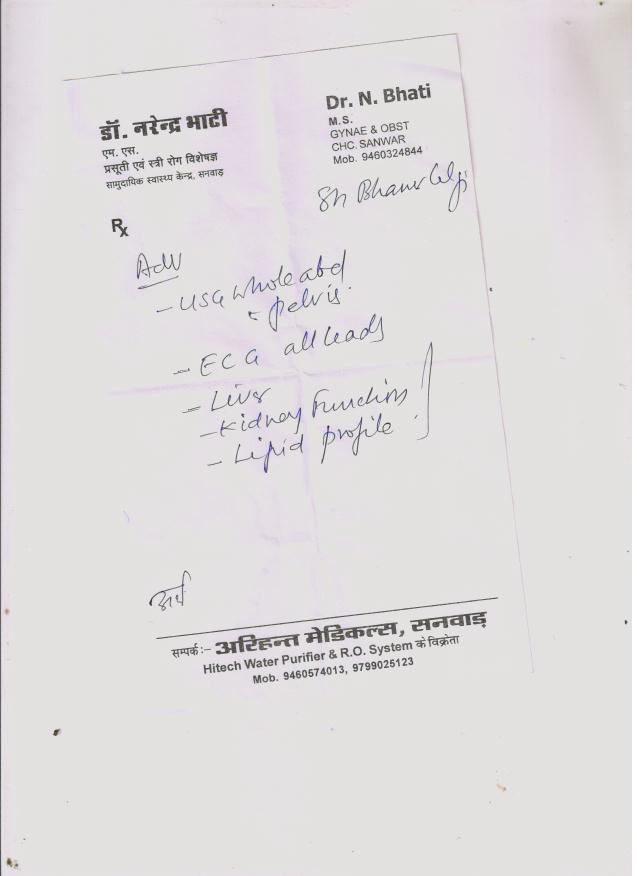 डॉ. नरेन्द्र भाटी
एम. एस.
प्रसूती एवं स्त्री रोग विशेषज्ञ
सामुदायिक स्वास्थ्य केन्द्र, सनवाड़
Dr. N. Bhati
M.S.
GYNAE & OBST
CHC. SANWAR
Mob. 9460324844
Sh Bhanwar
Rx
Adv
- USG whole abd
pelvis.
- ECG all leads
- Liver
- Kidney Function
- Lipid profile
सम्पर्क :- अरिहन्त मेडिकल्स, सनवाड़
Hitech Water Purifier & R.O. System के विक्रेता
Mob. 9460574013, 9799025123